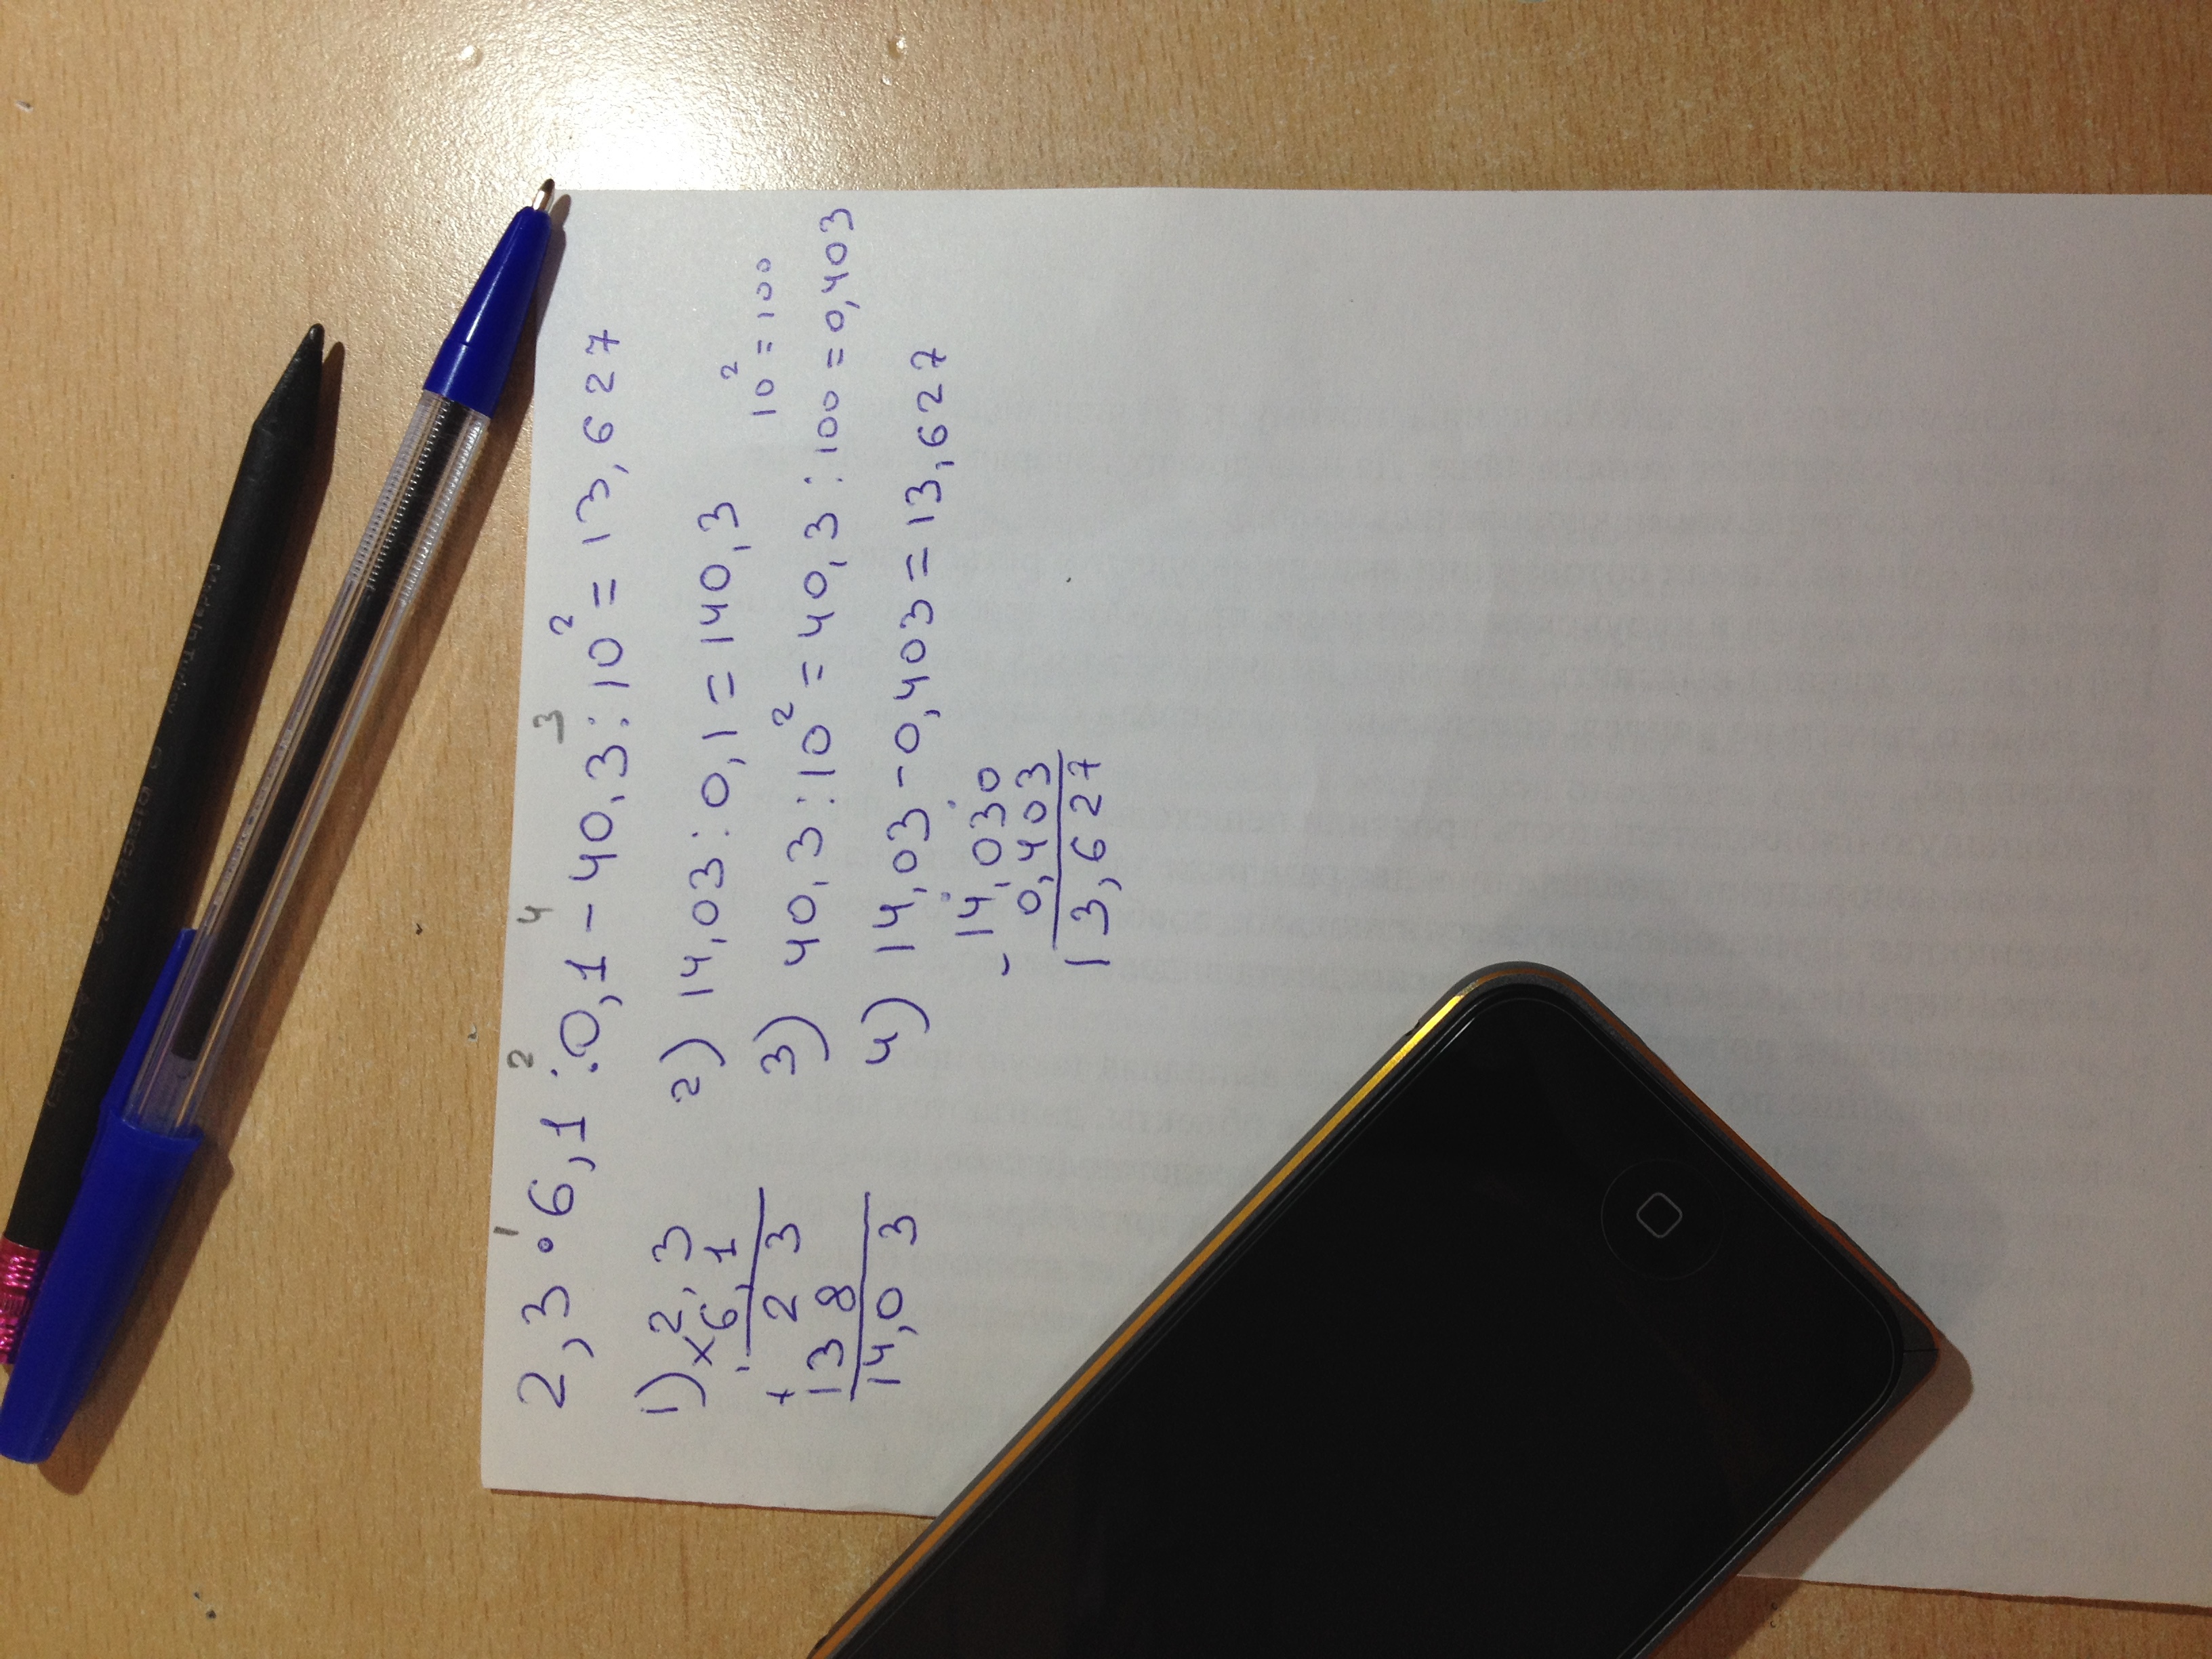 1 2 4 3
2,3 · 6,1 : 0,1 - 40,3 : 10² = 13,627
1) × 2,3
6,1
2 3
+ 13 8
14,0 3
2) 14,03 : 0,1 = 140,3
10² = 100
3) 40,3 : 10² = 40,3 : 100 = 0,403
4) 14,03 - 0,403 = 13,627
- 14,030
0,403
13,627